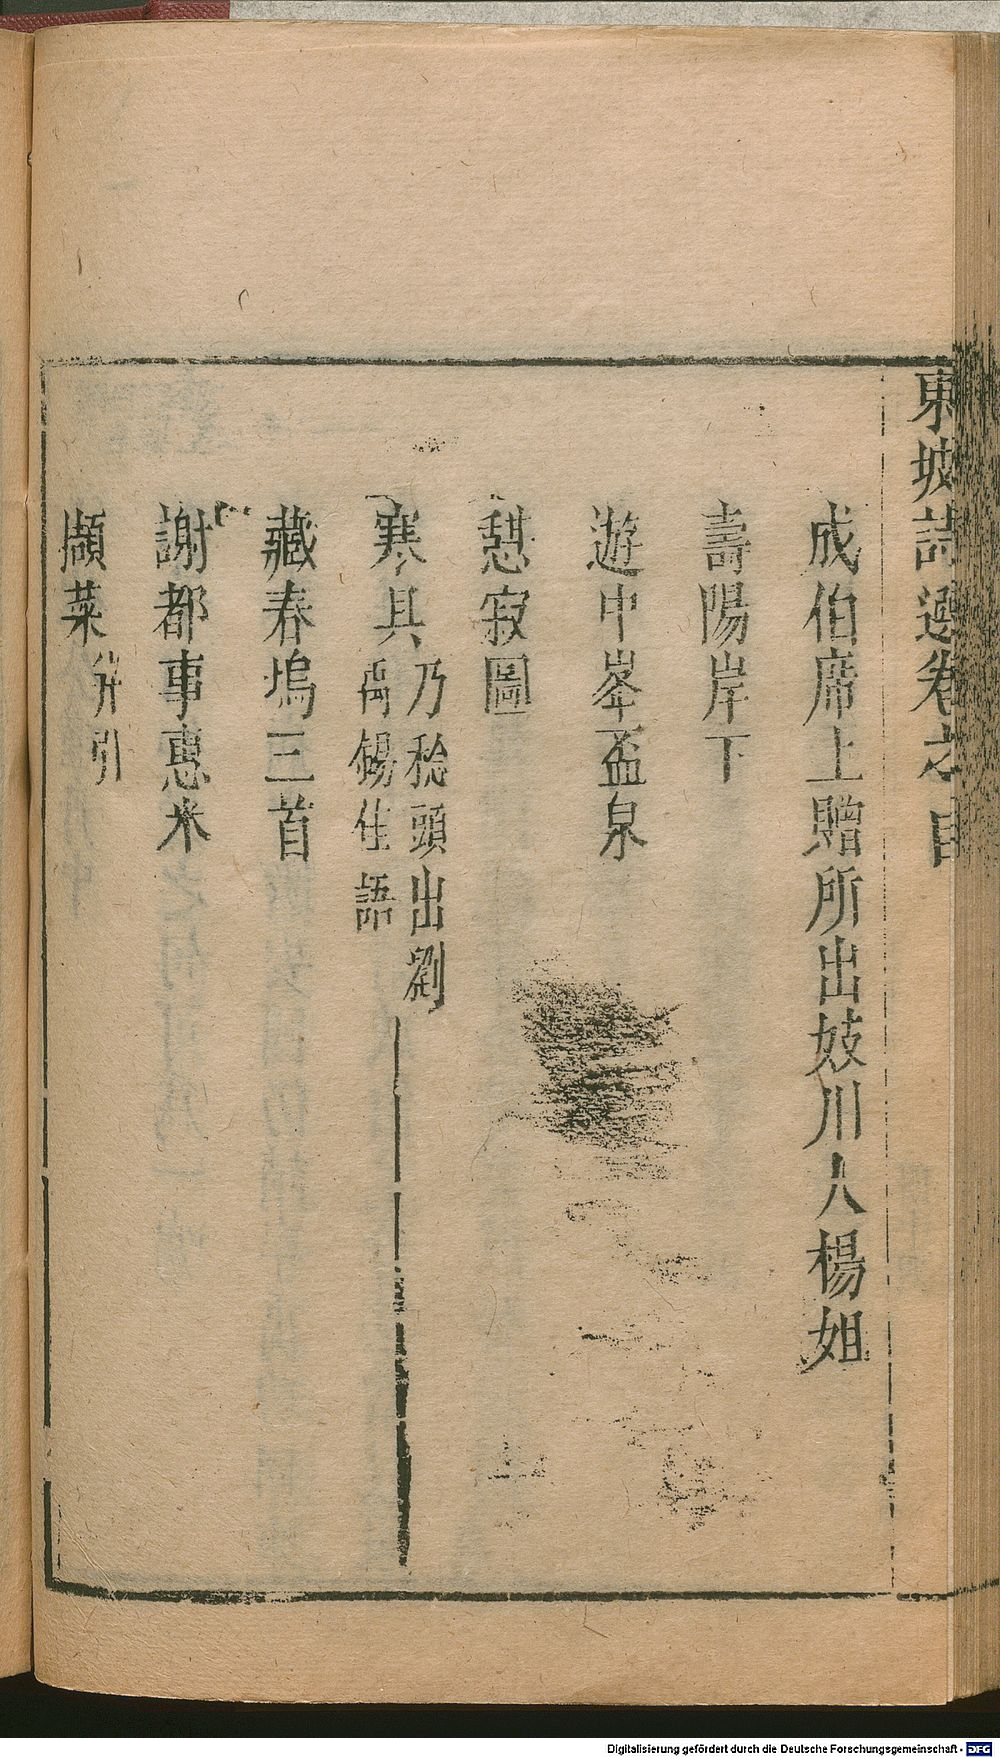 東坡詩選卷之目
成伯席上贈所出妓川人楊姐
壽陽岸下
遊中峯盃泉
憇寂圖
寒具乃稔頭出劉
禹錫佳語
藏春塢三首
謝都事惠米
擷菜并引
Digitalisierung gefördert durch die Deutsche Forschungsgemeinschaft - DFG